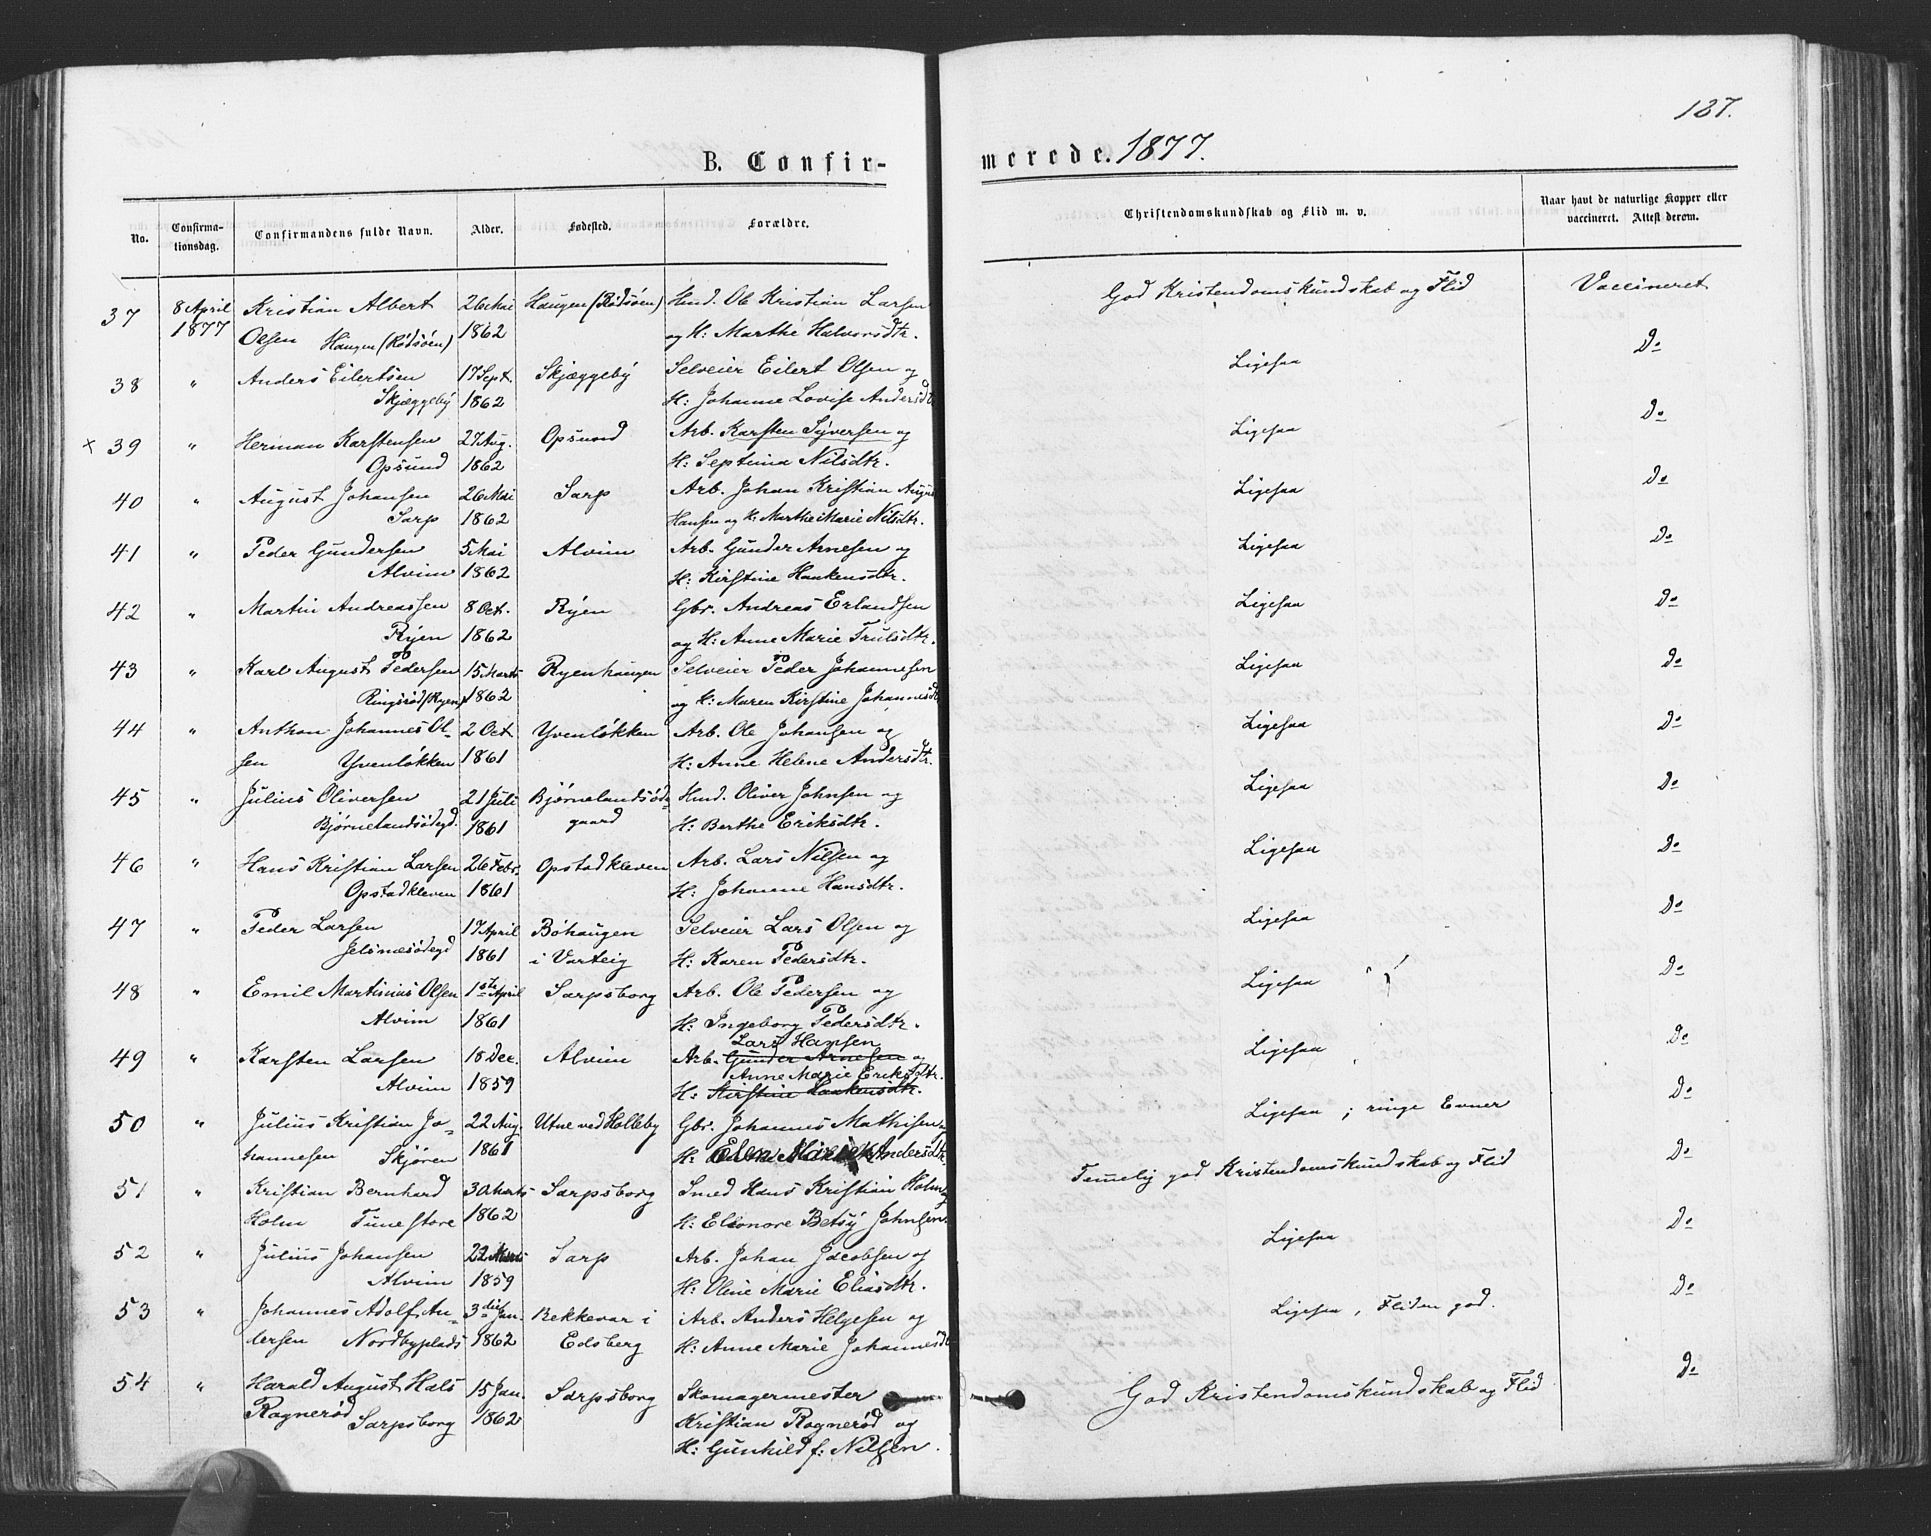 187.
B. Confir-
merede. 1877.
No.
Confirma-
tionsdag.
Confirmandens fulde Navn.
Alder.
Fødested.
Forældre.
Christendomskundskab og Flid m. v.
Naar havt de naturlige Kopper eller
vaccineret. Attest derom.
37 8 April Kristian Albert 26 Mai Haugen (Rødsøen) Hmd. Ole Kristian Larsen God Kristendomskundskab og Flid Vaccineret
1877 Olsen Haugen (Rødsøen) 1862 og H: Marthe Halvorsdtr.
38 " Anders Eilertsen 17 Sept. Skjæggeby Selveier Eilert Olsen og Ligesaa Do
Skjæggeby 1862 H: Johanne Lovise Andersdtr
x 39 " Herman Karstensen 27 Aug. Opsund Arb. Karsten Syversen og Ligesaa Do
Opsund 1862 H: Septima Nilsdtr.
40 " August Johansen 26 Mai Sarp Arb. Johan Kristian August Ligesaa Do
Sarp 1862 Hansen og H: Marthe Marie Nilsdtr.
41 " Peder Gundersen 5 Mai Alvim Arb. Gunder Arnesen og Ligesaa Do
Alvim 1862 H: Kirstine Haakensdtr.
42 " Martin Andreassen 8 Oct. Ryen Gbr. Andreas Erlandsen Ligesaa Do
Ryen 1862 og H: Anne Marie Trulsdtr.
43 " Karl August Pedersen 15 Marts Ryenhaugen Selveier Peder Johannesen Ligesaa Do
Ringsrød (Ryen) 1862 og H: Maren Kirstine Johannesdtr
44 " Anthon Johannes Ol- 2 Oct Yvenløkken Arb. Ole Johansen og Ligesaa Do
sen Yvenløkken 1861 H: Anne Helene Andersdtr.
45 " Julius Oliversen 21 Juli Bjørnelandsøde- Hmd. Oliver Johnsen og Ligesaa Do
Bjørnelandsødegd. 1861 gaard H: Berthe Eriksdtr.
46 " Hans Kristian Larsen 26 Febr. Opstadkleven Arb. Lars Nilsen og Ligesaa Do
Opstadkleven 1861 H: Johanne Hansdtr.
47 " Peder Larsen 17 April Bøhaugen Selveier Lars Olsen og Ligesaa Do
Jelsnesødegd 1861 i Varteig H: Karen Pedersdtr.
48 " Emil Martinius Olsen 1ste April Sarpsborg Arb. Ole Pedersen og Ligesaa Do
Alvim 1861 H: Ingeborg Pedersdtr.
Lars Hansen
49 " Karsten Larsen 18 Dec. Alvim Arb. Gunder Arnesen og Ligesaa Do
Anne Marie Eriksdtr.
Alvim 1859 H: Kirstine Haakensdtr.
50 " Julius Kristian Jo- 22 Aug. Utne ved Holleby Gbr. Johannes Mathisen og Ligesaa ; ringe Evner Do
hannesen Skjøren 1861 H: Elen Marie Andersdtr.
51 " Kristian Bernhard 30 Marts Sarpsborg Smed Hans Kristian Holm og Temmelig god Kristendomskundskab og Flid Do
Holm Tune store 1862 H: Eleonore Betsy Johnsen
52 " Julius Johansen 22 Marts Sarp Arb. Johan Jacobsen og Ligesaa Do
Alvim 1859 H: Oline Marie Eliasdtr.
53 " Johannes Adolf An- 3die Jan. Bekkevar i Arb. Anders Helgesen og Ligesaa, Fliden god. Do
dersen Nordbyplads 1862 Edsberg H: Anne Marie Johannesdtr
54 " Harald August Hals 15 Jan. Sarpsborg Skomagermester God Kristendomskundskab og Flid Do
Ragnerød Sarpsborg 1862 Kristian Ragnerød og
H: Gunhild f: Nilsen.